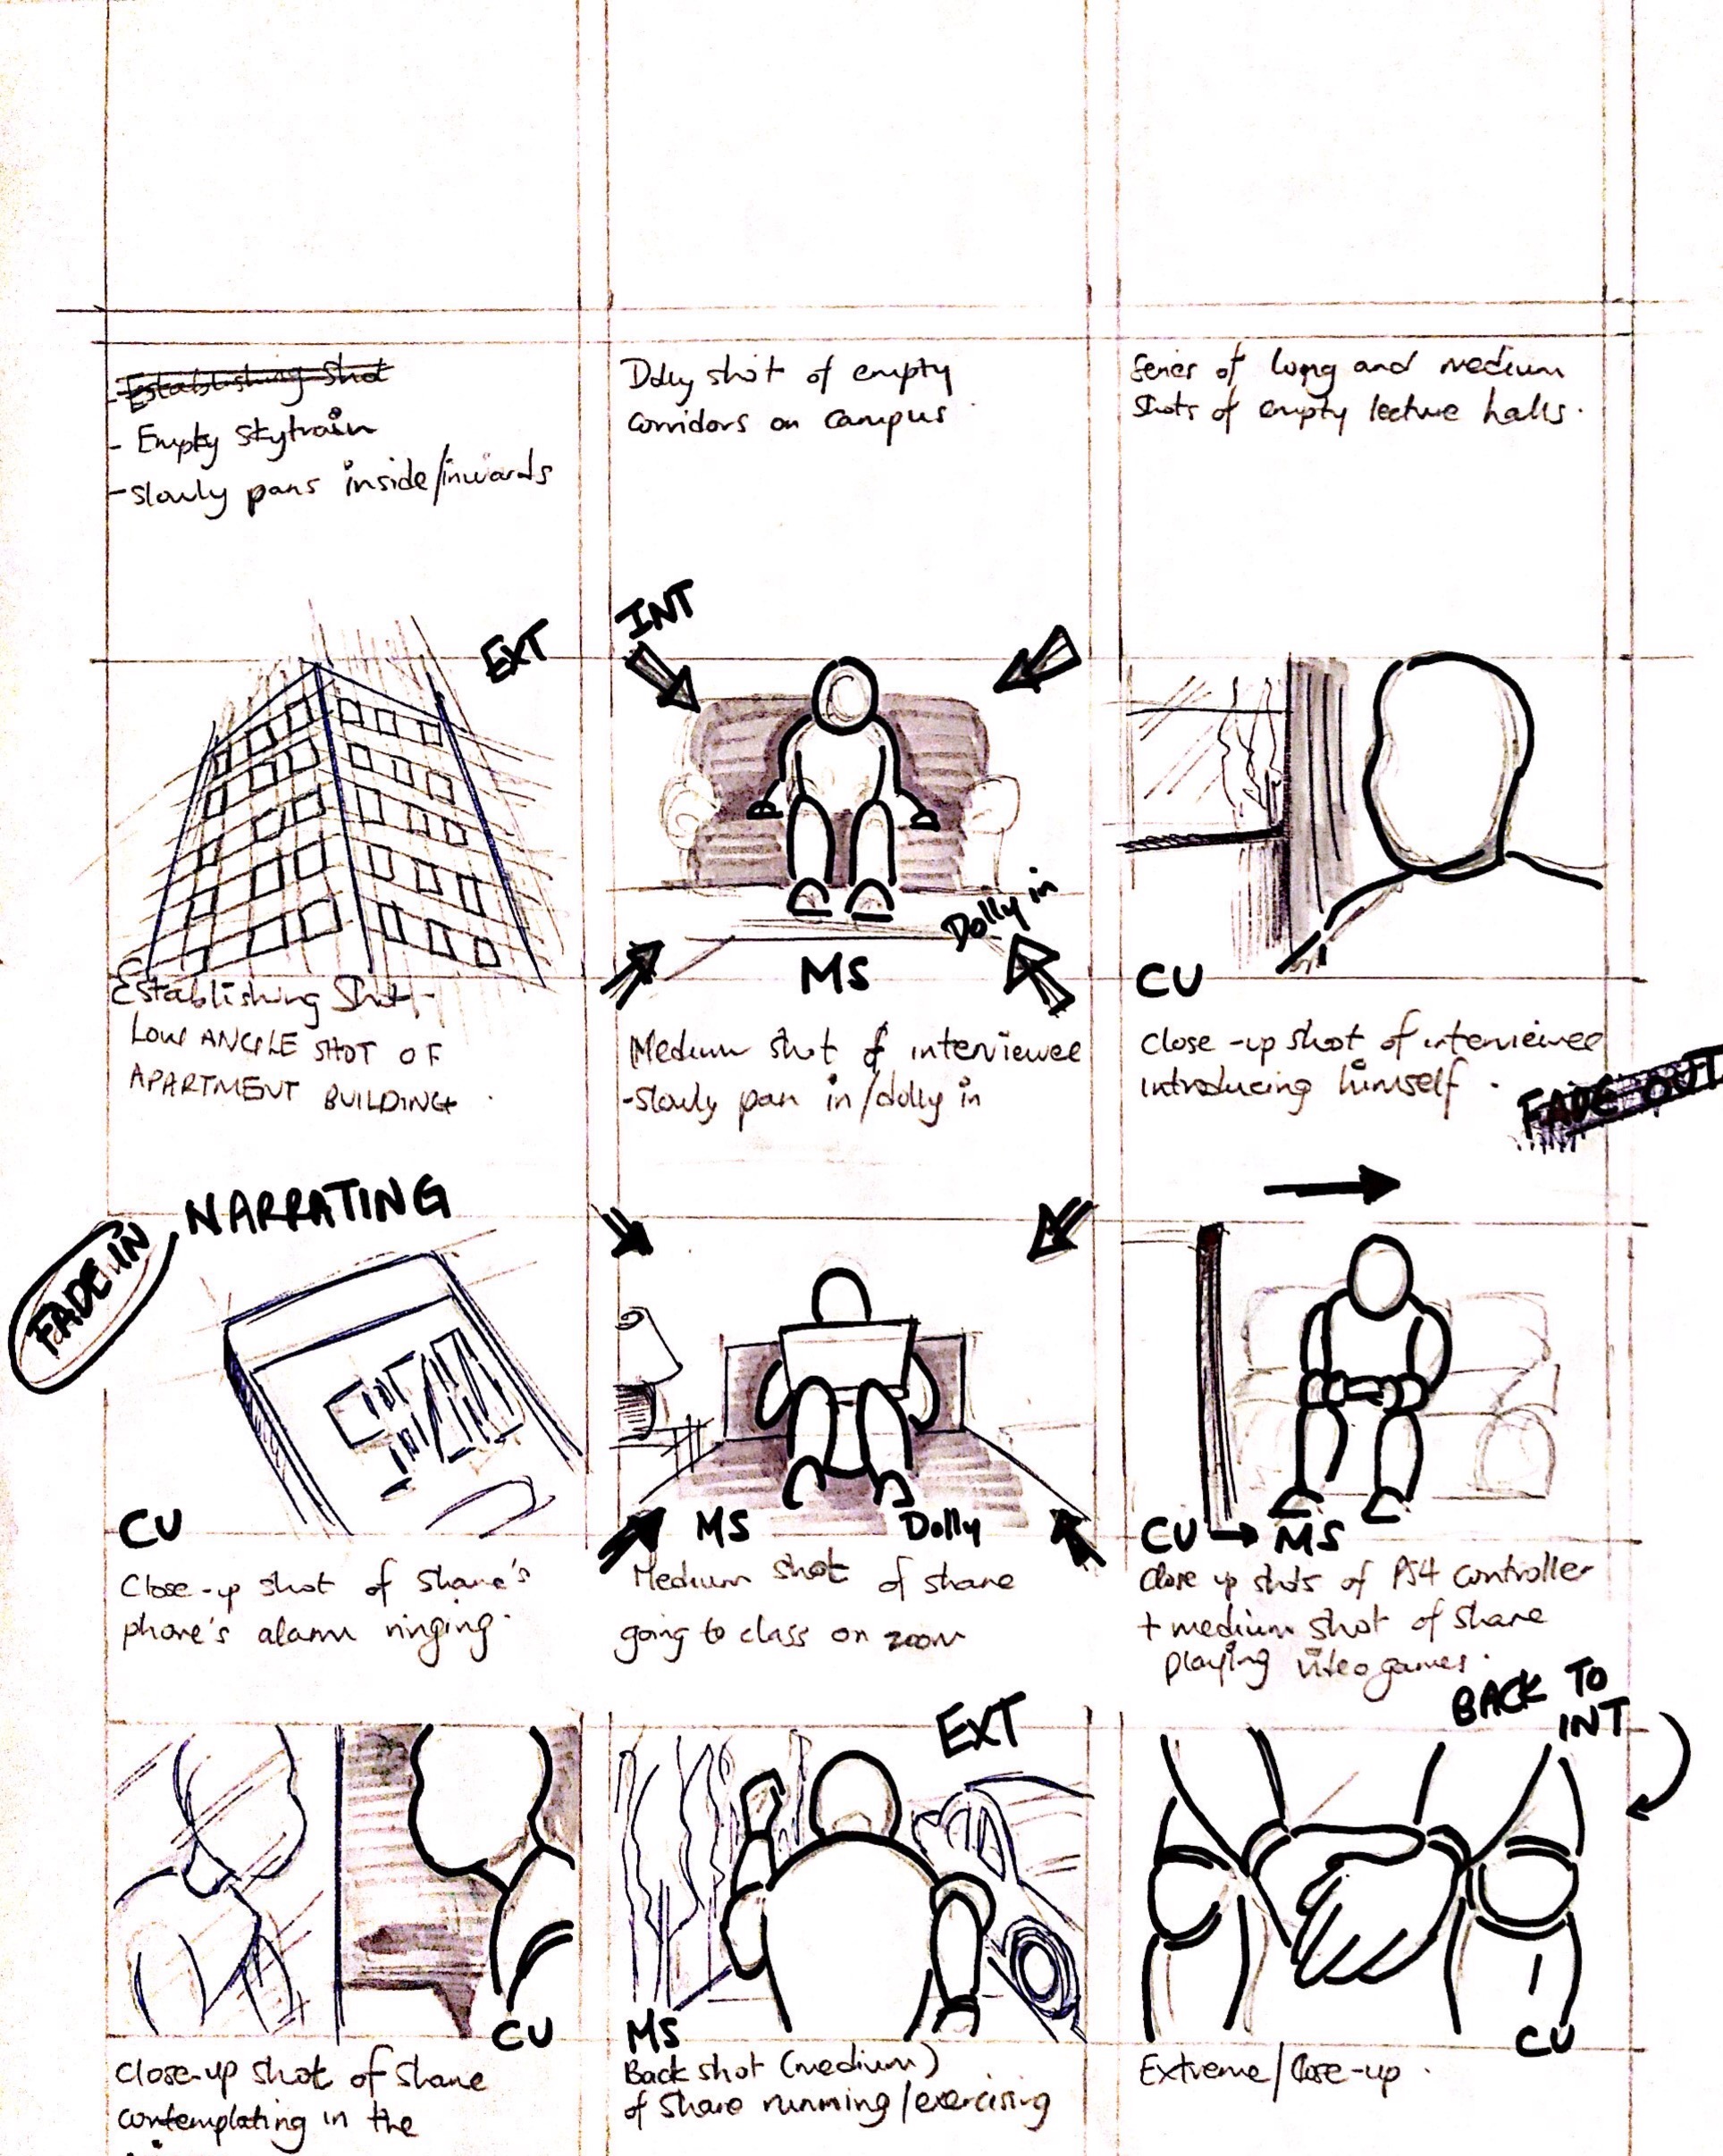 Establishing Shot
- Empty skytrain
- slowly pans inside/inwards
Dolly shot of empty
corridors on campus.
Series of long and medium
shots of empty lecture halls.
EXT
Establishing Shot -
LOW ANGLE SHOT OF
APARTMENT BUILDING.
INT
Dolly in
MS
Medium shot of interviewee
-slowly pan in/dolly in
CU
close-up shot of interviewee
introducing himself.
FADE OUT
FADE IN
NARRATING
CU
Close-up shot of Shane's
phone's alarm ringing.
MS Dolly
Medium shot of shane
going to class on zoom
CU → MS
close up shots of PS4 controller
+ medium shot of Shane
playing videogames.
CU
close-up shot of Shane
contemplating in the
EXT
MS
Back shot (medium)
of Shane running/exercising
BACK TO
INT
CU
Extreme/close-up.